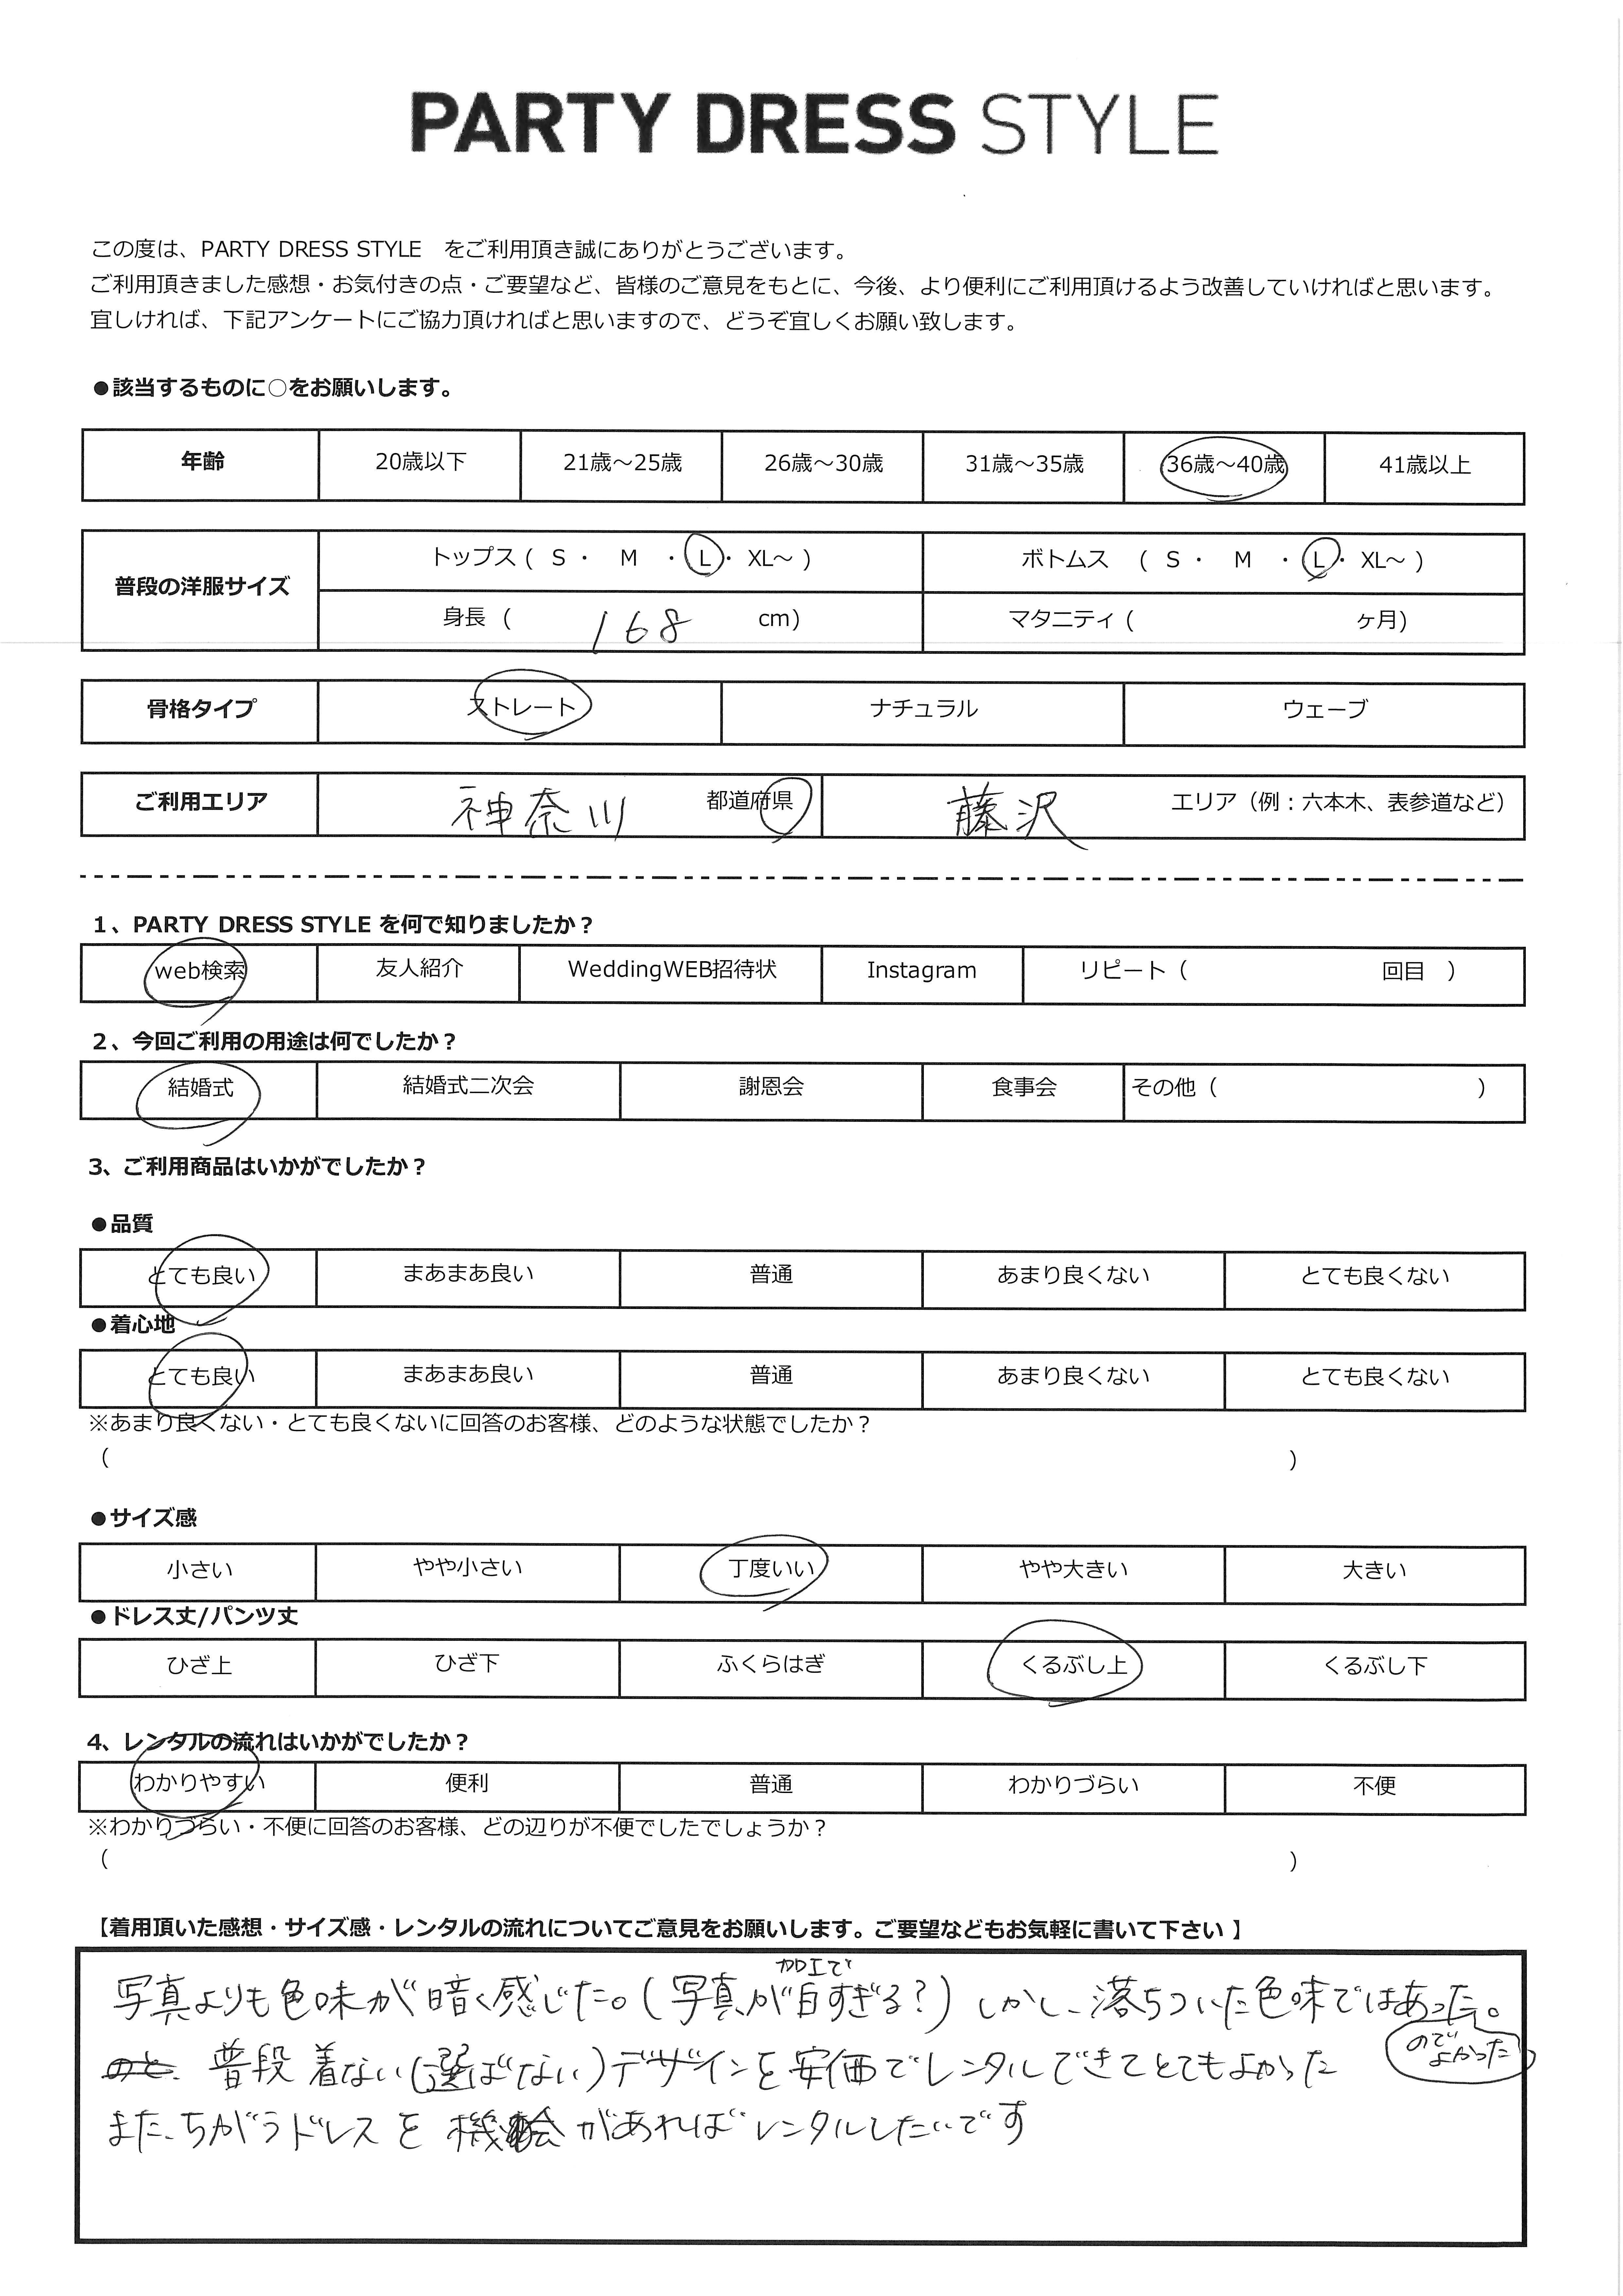 PARTY DRESS STYLE
この度は、PARTY DRESS STYLE をご利用頂き誠にありがとうございます。
ご利用頂きました感想・お気付きの点・ご要望など、皆様のご意見をもとに、今後、より便利にご利用頂けるよう改善していければと思います。
宜しければ、下記アンケートにご協力頂ければと思いますので、どうぞ宜しくお願い致します。
●該当するものに○をお願いします。
年齢 20歳以下 21歳～25歳 26歳～30歳 31歳～35歳 36歳～40歳 41歳以上
普段の洋服サイズ トップス ( S ・ M ・ L ・ XL～ ) ボトムス ( S ・ M ・ L ・ XL～ )
身長 ( 168 cm) マタニティ ( ヶ月)
骨格タイプ ストレート ナチュラル ウェーブ
ご利用エリア 神奈川 都道府県 藤沢 エリア（例：六本木、表参道など）
1、PARTY DRESS STYLE を何で知りましたか？
web検索 友人紹介 WeddingWEB招待状 Instagram リピート（ 回目 ）
2、今回ご利用の用途は何でしたか？
結婚式 結婚式二次会 謝恩会 食事会 その他（ ）
3、ご利用商品はいかがでしたか？
●品質
とても良い まあまあ良い 普通 あまり良くない とても良くない
●着心地
とても良い まあまあ良い 普通 あまり良くない とても良くない
※あまり良くない・とても良くないに回答のお客様、どのような状態でしたか？
（ ）
●サイズ感
小さい やや小さい 丁度いい やや大きい 大きい
●ドレス丈/パンツ丈
ひざ上 ひざ下 ふくらはぎ くるぶし上 くるぶし下
4、レンタルの流れはいかがでしたか？
わかりやすい 便利 普通 わかりづらい 不便
※わかりづらい・不便に回答のお客様、どの辺りが不便でしたでしょうか？
（ ）
【着用頂いた感想・サイズ感・レンタルの流れについてご意見をお願いします。ご要望などもお気軽に書いて下さい 】
加工で
写真よりも色味が暗く感じた。(写真が白すぎる？) しかし、落ちついた色味ではあった。
のでよかった
普段着ない(選ばない)デザインを安価でレンタルできてとてもよかった
また、ちがうドレスを機会があればレンタルしたいです